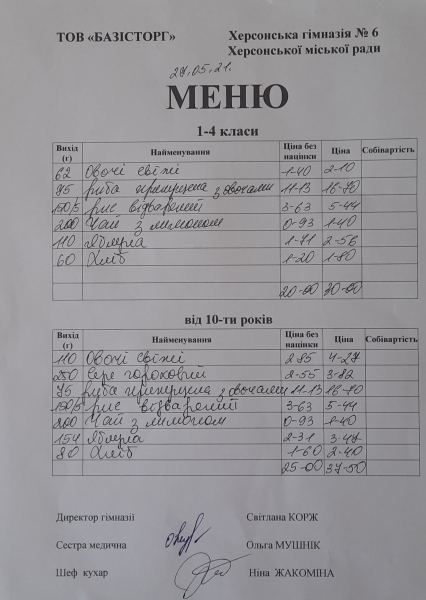 ТОВ «БАЗІСТОРГ» Херсонська гімназія № 6
Херсонської міської ради
27.05.21.
МЕНЮ
1-4 класи
Вихід (г) Найменування Ціна без націнки Ціна Собівартість
62 Овочі свіжі 1-40 2-10
75 риба припущена з овочами 11-13 16-70
150/5 рис відварений 3-63 5-44
200 Чай з лимоном 0-93 1-40
110 Яблука 1-71 2-56
60 Хліб 1-20 1-80
20-00 30-00
від 10-ти років
Вихід (г) Найменування Ціна без націнки Ціна Собівартість
110 Овочі свіжі 2-85 4-27
250 гороховий 2-55 3-82
75 риба припущена з овочами 11-13 16-70
150/5 рис відварений 3-63 5-44
200 Чай з лимоном 0-93 1-40
154 Яблука 2-31 3-47
80 Хліб 1-60 2-40
25-00 37-50
Директор гімназії Світлана КОРЖ
Сестра медична Ольга МУШНІК
Шеф кухар Ніна ЖАКОМІНА